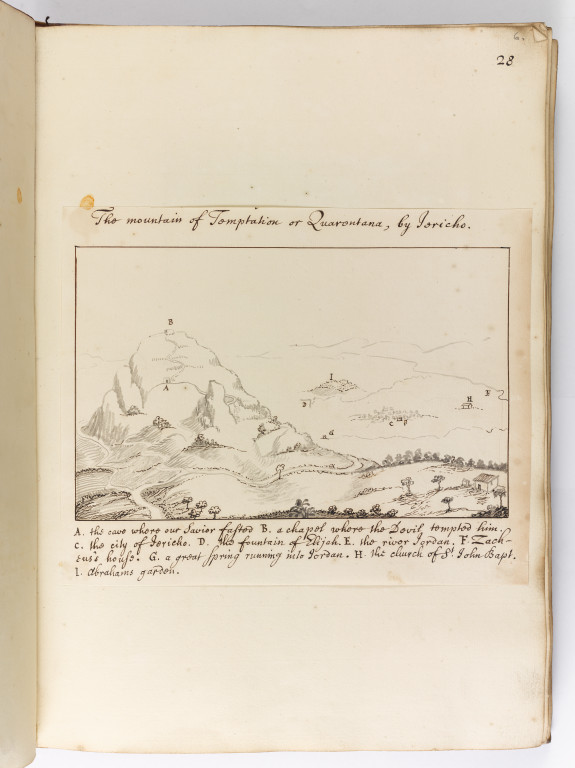 28
The mountain of Temptation or Quarentana, by Jericho.
B
A
I
D
C
H
E
G
A. the cave where our Savior fasted B. a chapel where the Devil tempted him.
C. the city of Jericho. D. the fountain of Elijah. E. the river Jordan. F. Zach-
eus's house. G. a great spring running into Jordan. H. the church of St John Bapt.
I. Abrahams garden.